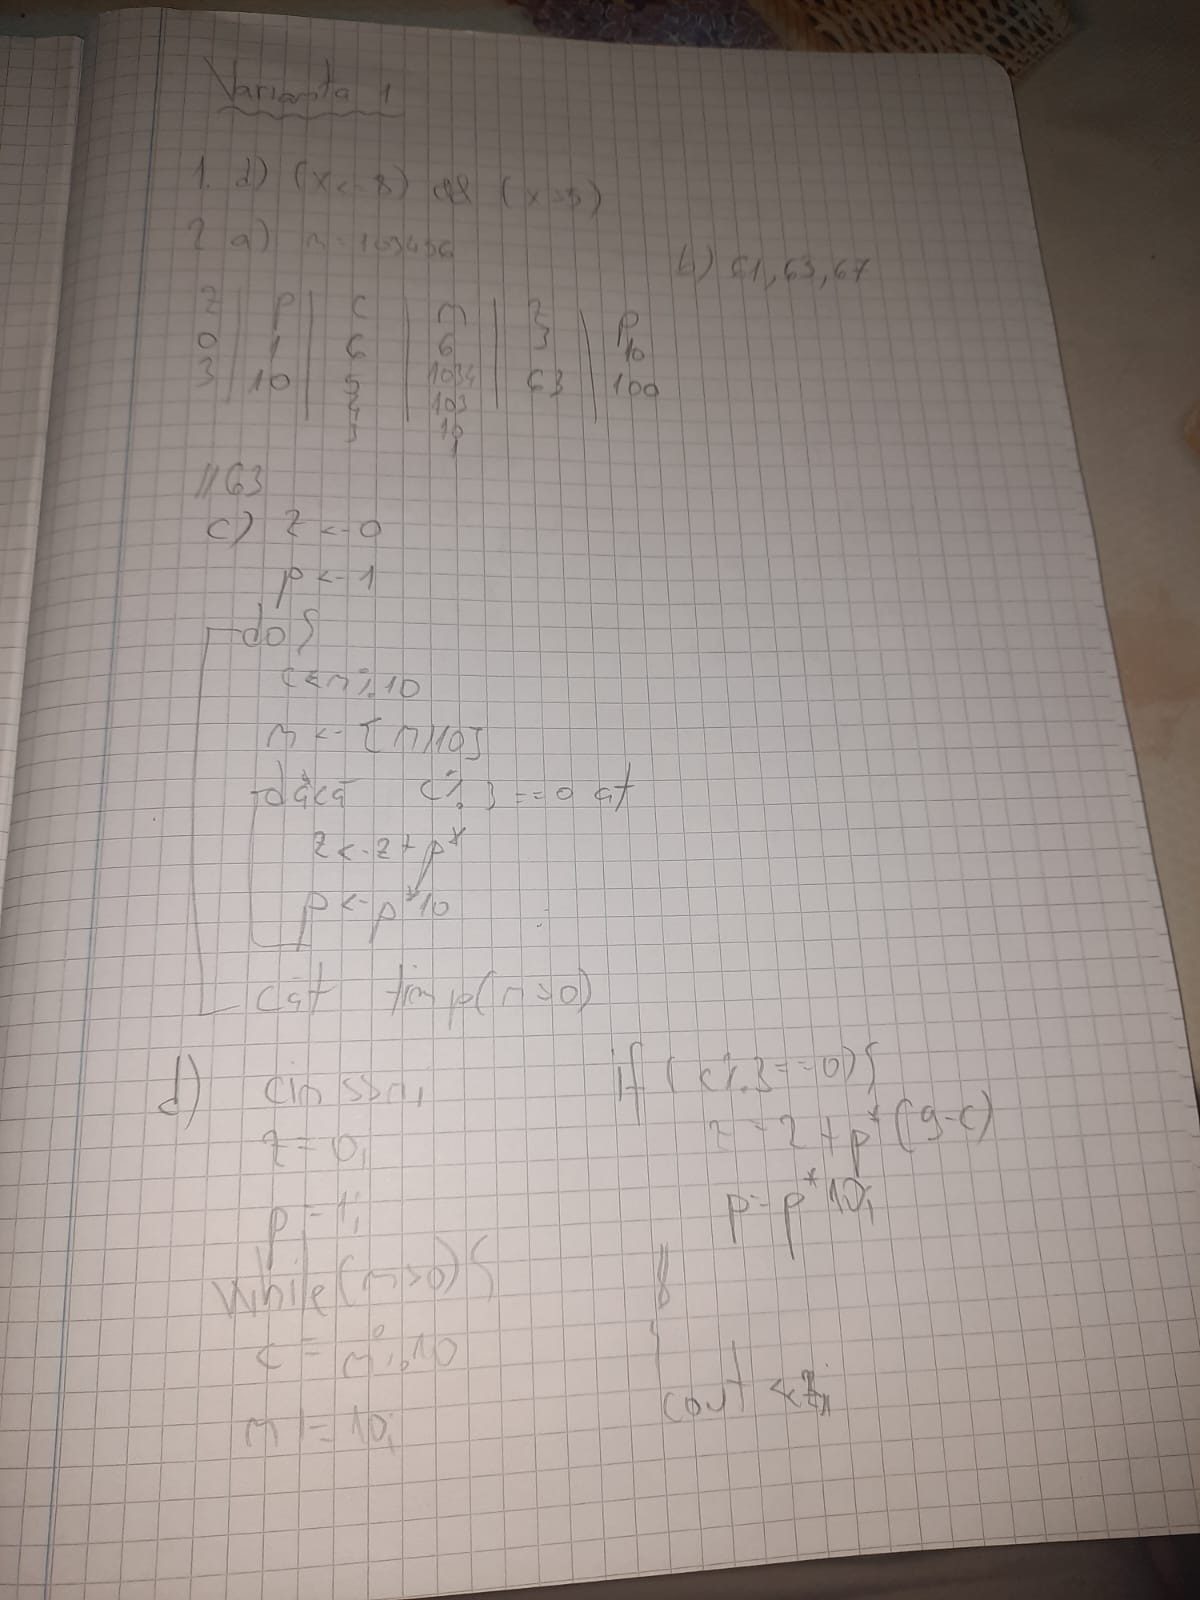 Varianta 1
1. d) (x<-8) && (x>3)
2 a) n=103456
b) 61, 63, 67
z p c n z p
0 1 6 6 3 10
3 10 5 1034 63 100
4 103
3 10
1
//63
c) z <- 0
p <- 1
do {
c<-n%10
n <- [n/10]
dacă c%3==0 at
z <- z + p*
p <- p*10
cât timp(n>0)
d) cin >>n;
z=0;
p=1;
while(n>0){
c=n%10
n/=10;
if (c%3==0){
z=z+p*(9-c)
p=p*10;
}
}
cout <<z;